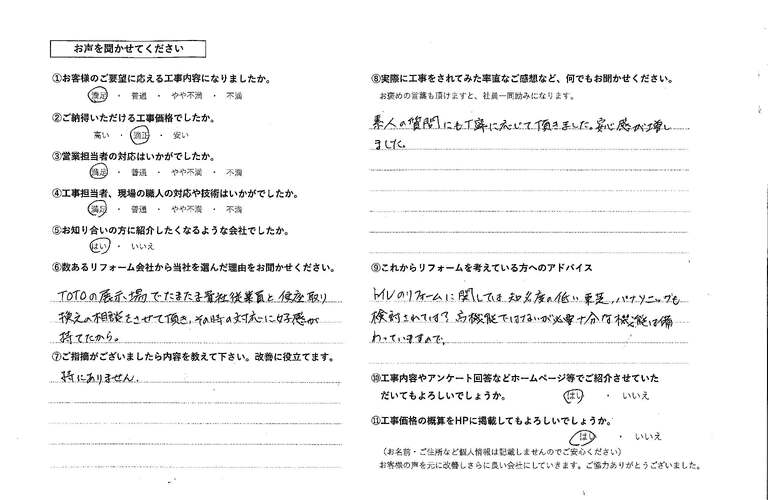 お声を聞かせてください
①お客様のご要望に応える工事内容になりましたか。
満足 ・ 普通 ・ やや不満 ・ 不満
②ご納得いただける工事価格でしたか。
高い ・ 適正 ・ 安い
③営業担当者の対応はいかがでしたか。
満足 ・ 普通 ・ やや不満 ・ 不満
④工事担当者、現場の職人の対応や技術はいかがでしたか。
満足 ・ 普通 ・ やや不満 ・ 不満
⑤お知り合いの方に紹介したくなるような会社でしたか。
はい ・ いいえ
⑥数あるリフォーム会社から当社を選んだ理由をお聞かせください。
TOTOの展示場でたまたま貴社従業員と便座取り
換えの相談をさせて頂き、その時の対応に好感が
持てたから。
⑦ご指摘がございましたら内容を教えて下さい。改善に役立てます。
特にありません。
⑧実際に工事をされてみた率直なご感想など、何でもお聞かせください。
お褒めの言葉も頂けますと、社員一同励みになります。
素人の質問にも丁寧に応じて頂きました。安心感が増し
ました。
⑨これからリフォームを考えている方へのアドバイス
トイレのリフォームに関しては知名度の低い、パナソニックも
検討されては?高機能ではないが必要十分な機能は備
わっていますので。
⑩工事内容やアンケート回答などホームページ等でご紹介させていた
だいてもよろしいでしょうか。 はい ・ いいえ
⑪工事価格の概算をHPに掲載してもよろしいでしょうか。
はい ・ いいえ
（お名前・ご住所など個人情報は記載しませんのでご安心ください）
お客様の声を元に改善しさらに良い会社にしていきます。ご協力ありがとうございました。